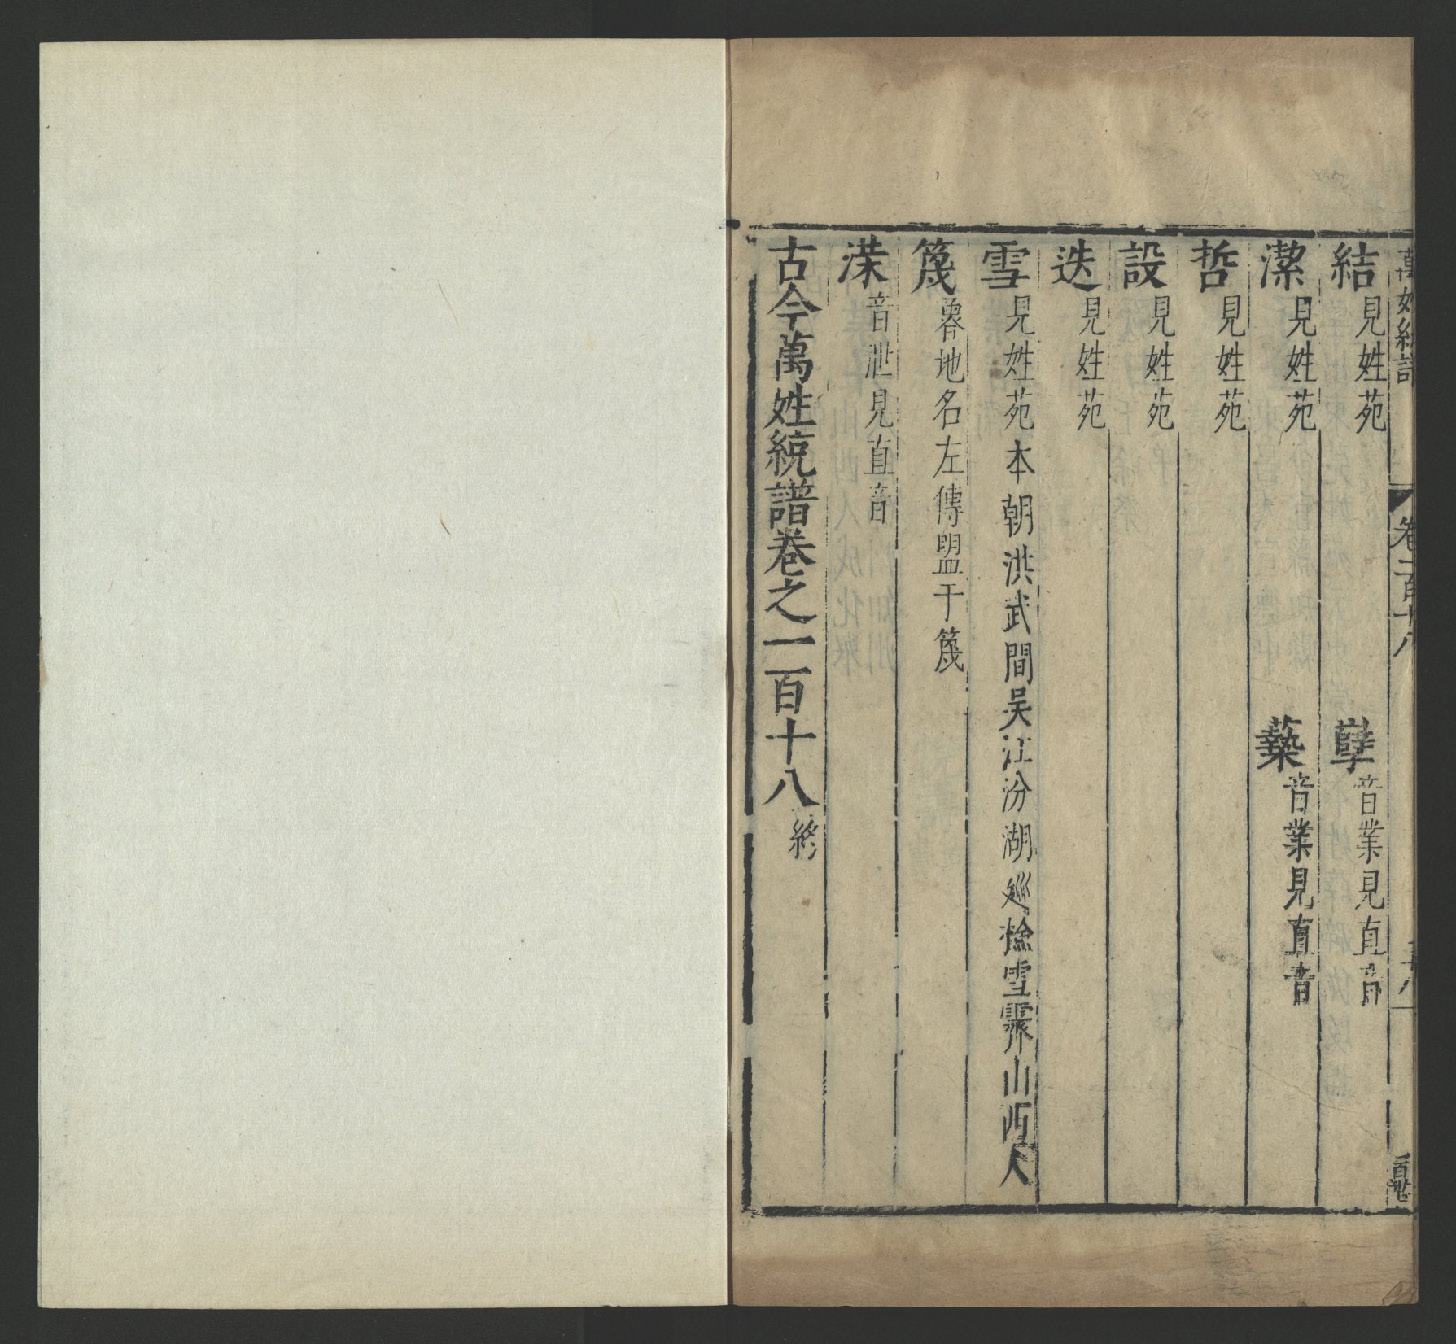 萬姓統譜
卷一百十八
結見姓苑 孽音業見直音
潔見姓苑 蘖音業見直音
哲見姓苑
設見姓苑
迭見姓苑
雪見姓苑本朝洪武間吳江汾湖巡檢雪霽山西人
篾魯地名左傳盟于篾
渫音泄見直音
古今萬姓統譜卷之一百十八 終